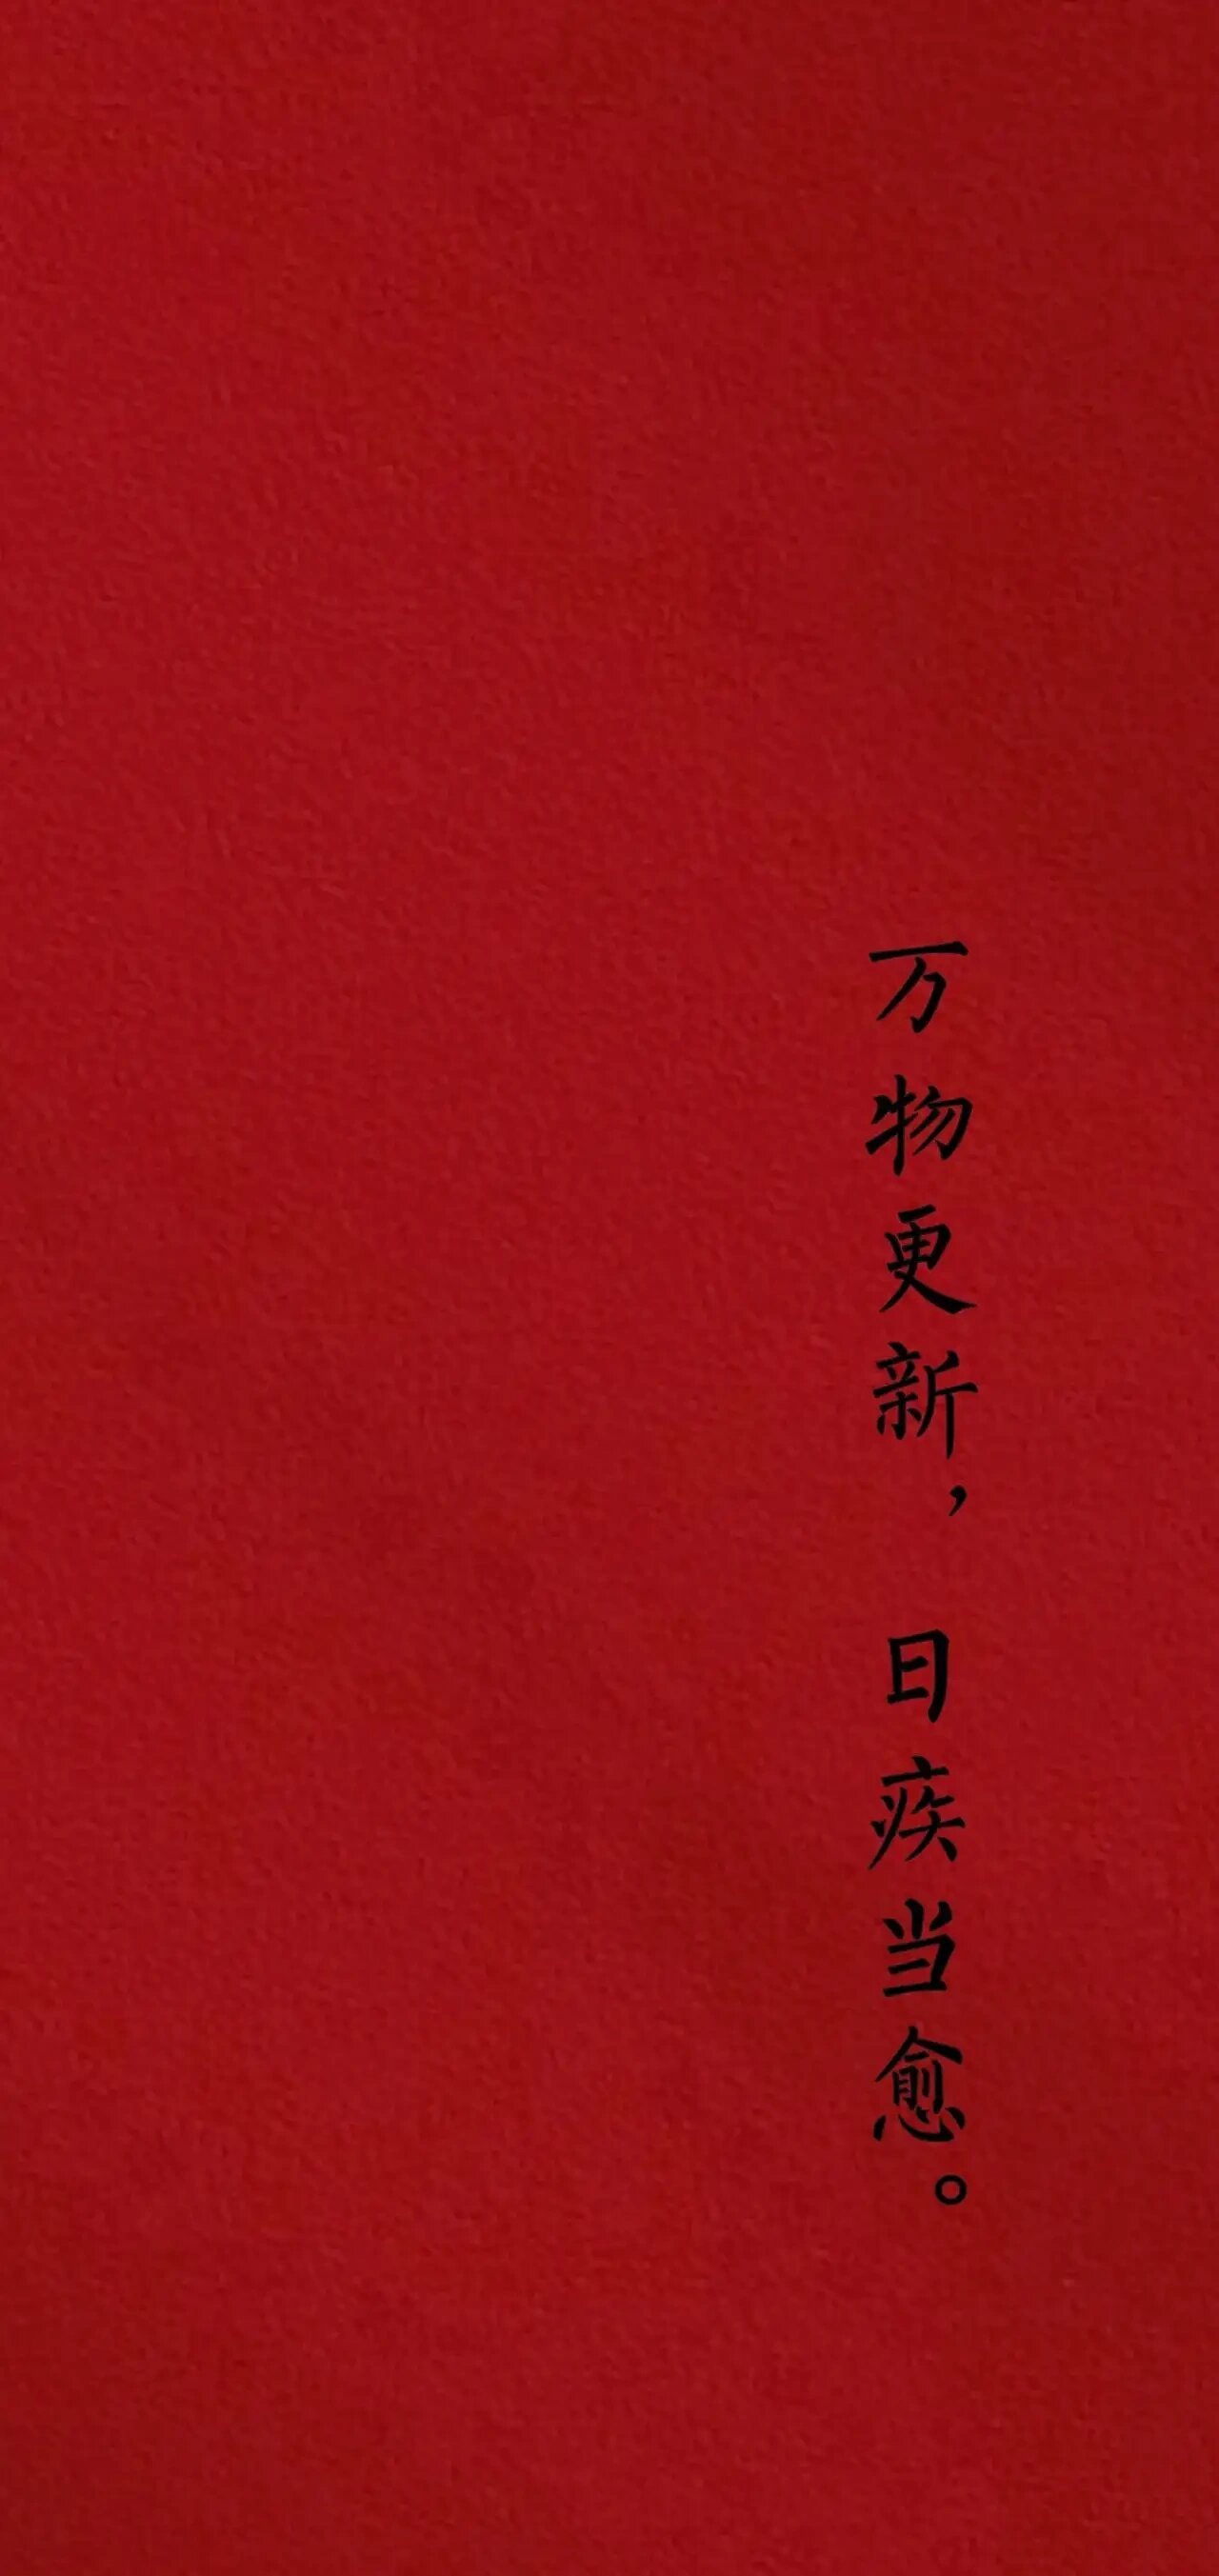 万物更新，日疾当愈。